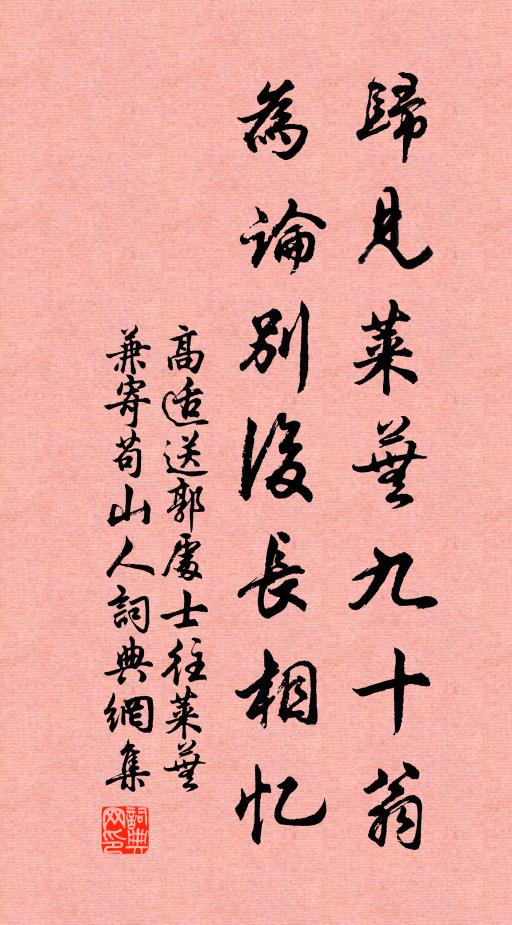 歸見萊蕪九十翁
為論別後長相忆
高适送郭處士往萊蕪
兼寄苟山人詞典網集
詞典网印